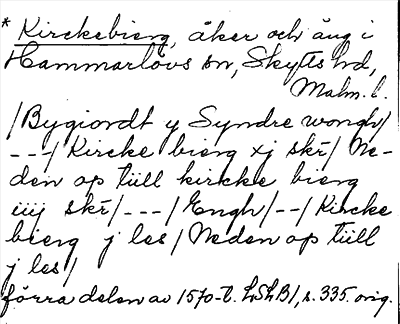 * Kirckebierg, åker och äng i
Hammarlövs sn, Skytts hd,
Malm. l.
/Bygiordt y Syndre wongh/
---/Kircke bierg xj skr̄/Ne-
den op tiill kircke bierg
iiij skr̄/---/Engh/--/Kircke
bierg j les/Neden op tiill
j les/
förra delen av 1570-t. LSLB/, s. 335. orig.